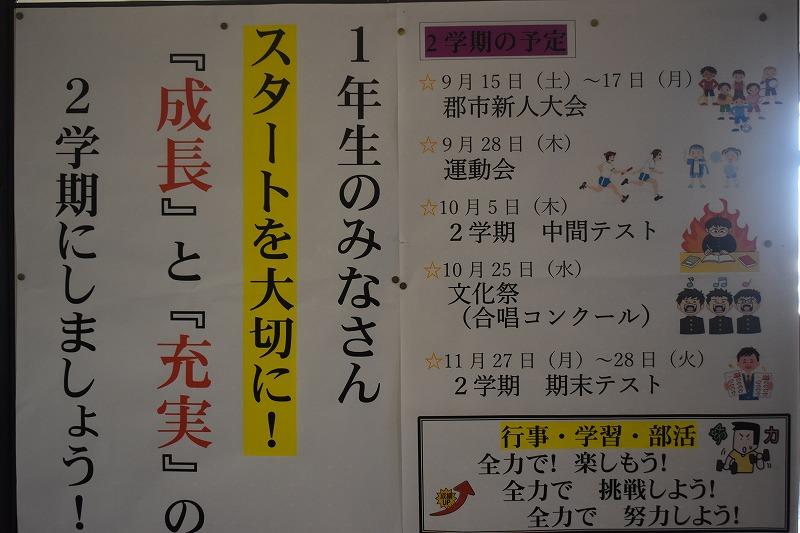 1年生のみなさん
スタートを大切に！
『成長』と『充実』の
2学期にしましょう！
2学期の予定
☆9月15日（土）～17日（月）
郡市新人大会
☆9月28日（木）
運動会
☆10月5日（木）
2学期　中間テスト
☆10月25日（水）
文化祭
（合唱コンクール）
☆11月27日（月）～28日（火）
2学期　期末テスト
行事・学習・部活
全力で！楽しもう！
全力で　挑戦しよう！
全力で　努力しよう！
力